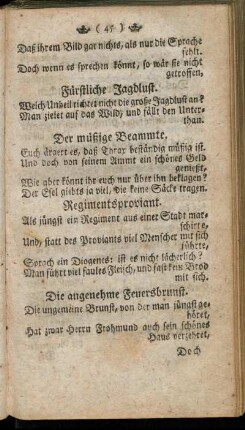 ( 47 )
Daß ihrem Bild gar nichts, als nur die Sprache
fehlt.
Doch wenn es sprechen könnt, so wär sie nicht
getroffen.
Fürstliche Jagdlust.
Welch Unheil richtet nicht die große Jagdlust an?
Man zielet auf das Wild, und fällt den Unter-
than.
Der müßige Beammte.
Euch ärgert es, daß Thrax beständig müßig ist.
Und doch von seinem Ammt ein schönes Geld
genießt,
Wie aber könnt ihr euch nur über ihn beklagen?
Der Esel giebts ja viel, die keine Säcke tragen.
Regimentsproviant.
Als jüngst ein Regiment aus einer Stadt mar-
schirte,
Und, statt des Proviants viel Menscher mit sich
führte,
Sprach ein Diogenes: ist es nicht lächerlich?
Man führt viel faules Fleisch, und fast kein Brod
mit sich.
Die angenehme Feuersbrunst.
Die ungemeine Brunst, von der man jüngst ge-
höret,
Hat zwar Herrn Frohmund auch sein schönes
Haus verzehret,
Doch